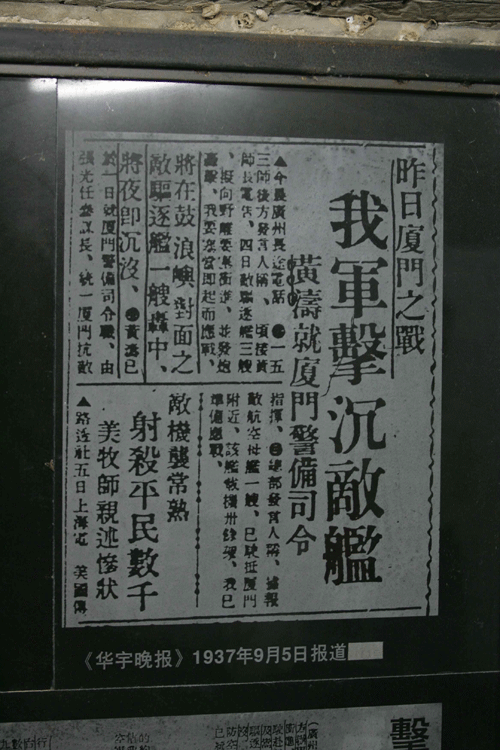 昨日廈門之戰
我軍擊沉敵艦
黃濤就廈門警備司令
▲今晨廣州長途電話 ●一五
三師後方發言人稱、頃接黃
師長電告、四日敵驅逐艦三艘
、擬向野要塞衝進、並發炮
轟擊、我要塞當即起而應戰、
將在鼓浪嶼對面之
敵驅逐艦一艘轟中、
將夜即沉沒、●黃濤已
於一日就廈門警備司令職、由
張光任參謀長、統一廈門抗敵
指揮、●總部發言人稱、據報
敵航空母艦一艘、已駛抵廈門
附近、該艦載機卅餘架、我已
準備應戰、
敵機襲常熟
射殺平民數千
美牧師親述慘狀
▲路透社五日上海電 美國傳
《华宇晚报》1937年9月5日报道
擊